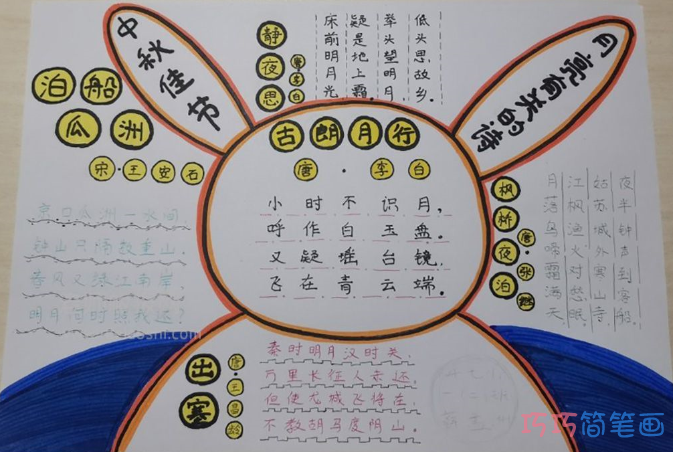 中秋佳节
月亮有关的诗
静夜思
唐·李白
床前明月光,
疑是地上霜。
举头望明月,
低头思故乡。
泊船
瓜洲
宋·王安石
京口瓜洲一水间,
钟山只隔数重山。
春风又绿江南岸,
明月何时照我还?
古朗月行
唐·李白
小时不识月,
呼作白玉盘。
又疑瑶台镜,
飞在青云端。
枫桥夜泊
唐·张继
月落乌啼霜满天
江枫渔火对愁眠
姑苏城外寒山寺
夜半钟声到客船
出塞
唐·王昌龄
秦时明月汉时关,
万里长征人未还。
但使龙城飞将在,
不教胡马度阴山。
巧巧简笔画